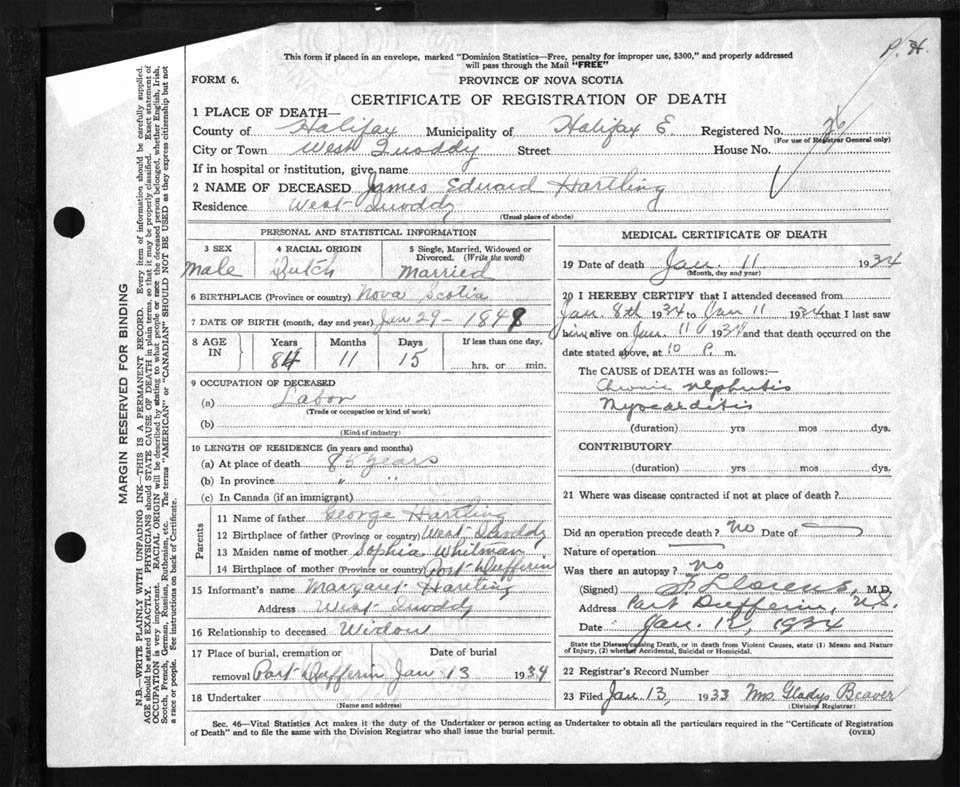 P. H.
This form if placed in an envelope, marked "Dominion Statistics—Free, penalty for improper use, $300," and properly addressed
will pass through the Mail "FREE"
FORM 6.
PROVINCE OF NOVA SCOTIA
CERTIFICATE OF REGISTRATION OF DEATH
1 PLACE OF DEATH—
County of Halifax Municipality of Halifax E. Registered No. 26
(For use of Registrar General only)
City or Town West Quoddy Street House No.
If in hospital or institution, give name
2 NAME OF DECEASED James Edward Hartling
Residence West Quoddy
(Usual place of abode)
PERSONAL AND STATISTICAL INFORMATION
3 SEX 4 RACIAL ORIGIN 5 Single, Married, Widowed or Divorced. (Write the word)
Male Dutch Married
6 BIRTHPLACE (Province or country) Nova Scotia
7 DATE OF BIRTH (month, day and year) Jan 29 - 1849
8 AGE IN Years Months Days If less than one day,
84 11 15 hrs. or min.
9 OCCUPATION OF DECEASED
(a) Labor
(Trade or occupation or kind of work)
(b)
(Kind of industry)
10 LENGTH OF RESIDENCE (in years and months)
(a) At place of death 85 years
(b) In province " "
(c) In Canada (if an immigrant)
Parents
11 Name of father George Hartling
12 Birthplace of father (Province or country) West Quoddy
13 Maiden name of mother Sophia Whitman
14 Birthplace of mother (Province or country) Port Dufferin
15 Informant's name Margaret Hartling
Address West Quoddy
16 Relationship to deceased Widow
17 Place of burial, cremation or Date of burial
removal Port Dufferin Jan 13 1934
18 Undertaker
(Name and address)
MEDICAL CERTIFICATE OF DEATH
19 Date of death Jan. 11 1934
(Month, day and year)
20 I HEREBY CERTIFY that I attended deceased from
Jan. 8th 1934 to Jan 11 1934 that I last saw
him alive on Jan. 11 1934 and that death occurred on the
date stated above, at 10 P. m.
The CAUSE OF DEATH was as follows:—
Chronic nephritis
Myocarditis
(duration) yrs mos dys.
CONTRIBUTORY
(duration) yrs mos dys.
21 Where was disease contracted if not at place of death?
Did an operation precede death? No Date of
Nature of operation
Was there an autopsy? No
(Signed) M.D.
Address Port Dufferin, N.S.
Date Jan. 12, 1934
State the Disease causing Death, or in death from Violent Causes, state (1) Means and Nature
of Injury, (2) whether Accidental, Suicidal or Homicidal.
22 Registrar's Record Number
23 Filed Jan. 13, 1933 Mrs Gladys Beaver
(Division Registrar)
Sec. 46—Vital Statistics Act makes it the duty of the Undertaker or person acting as Undertaker to obtain all the particulars required in the "Certificate of Registration
of Death" and to file the same with the Division Registrar who shall issue the burial permit.
(OVER)
MARGIN RESERVED FOR BINDING
N.B.—WRITE PLAINLY WITH UNFADING INK—THIS IS A PERMANENT RECORD. Every item of information should be carefully supplied.
AGE should be stated EXACTLY. PHYSICIANS should STATE CAUSE OF DEATH in plain terms, so that it may be properly classified. Exact statement of
OCCUPATION is very important. RACIAL ORIGIN will be described by stating to what people or race the deceased person belonged, whether English, Irish,
Scotch, French, German, Russian, Ruthenian, etc. The terms "AMERICAN" or "CANADIAN" SHOULD NOT BE USED as they express citizenship but not
a race or people. See instructions on back of Certificate.